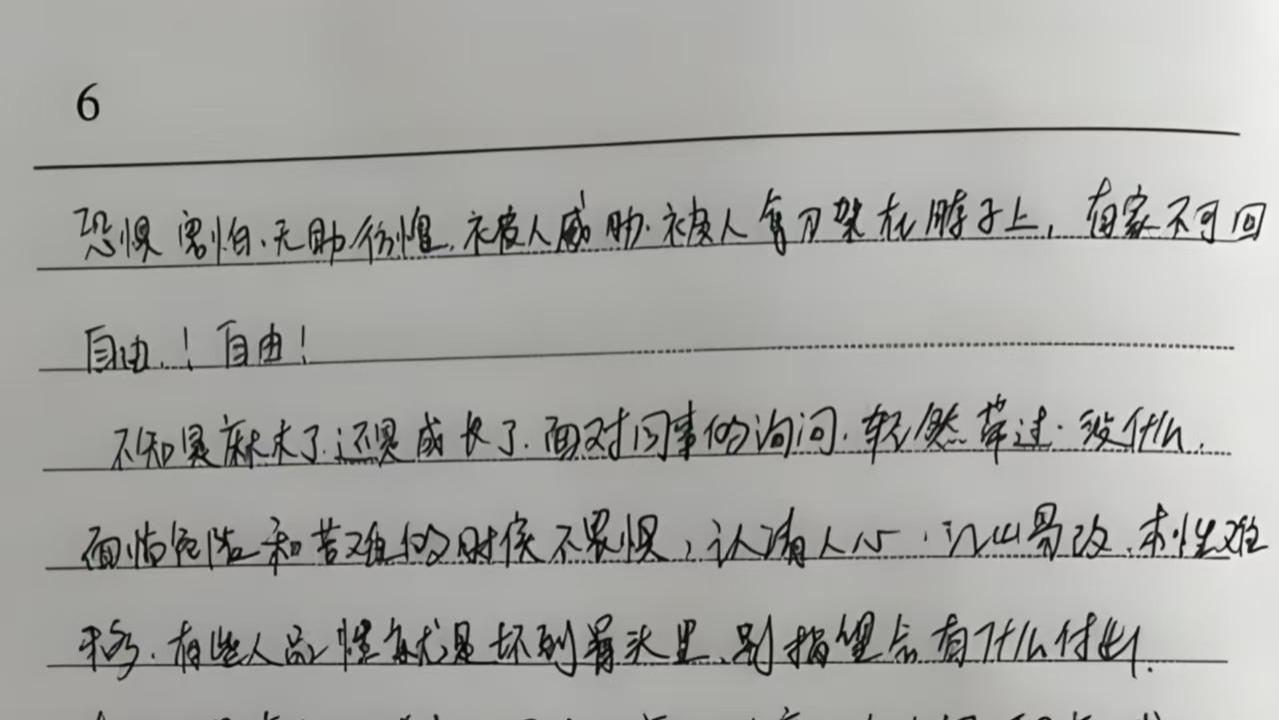 6
恐惧 害怕.无助.彷惶.被人威胁.被人拿刀架在脖子上,有家不可回
自由.!自由!
不知是麻木了.还是成长了.面对同事的询问.轻然带过.没什么.
面临危险和苦难的时侯不畏惧,认清人心.江山易改.本性难
移.有些人品性就是坏到骨头里.别指望会有什么付出.